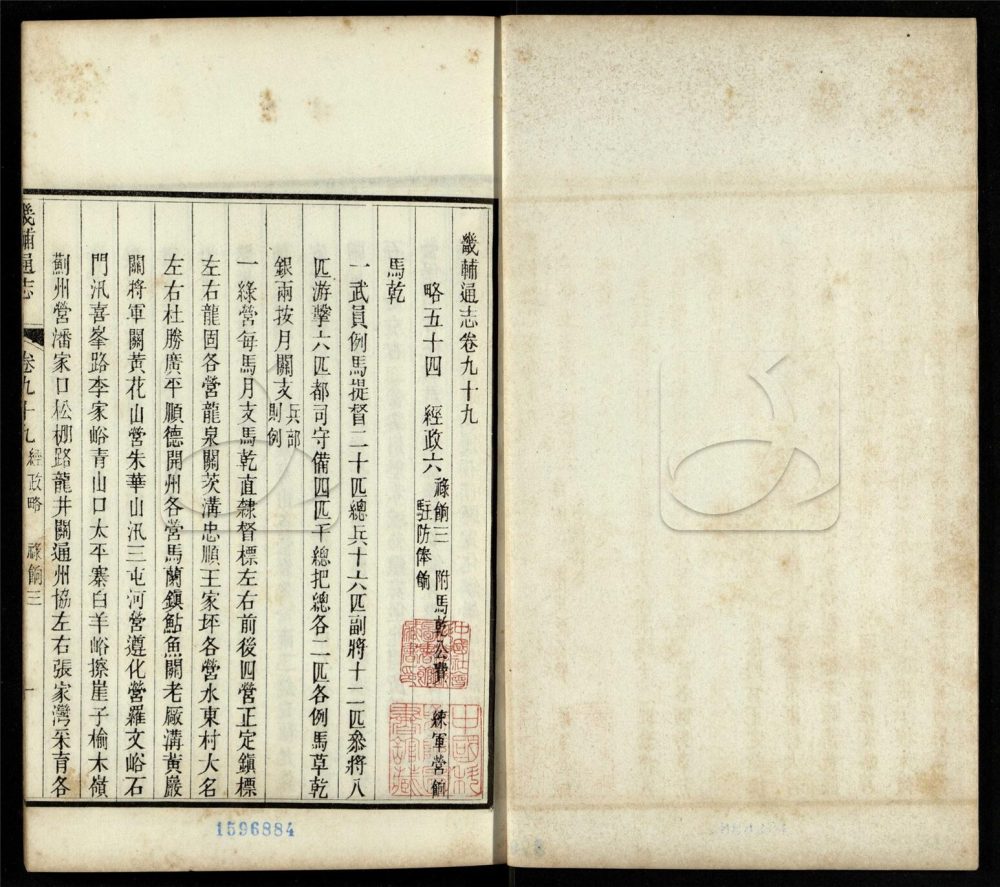 畿輔通志卷九十九
略五十四 經政六 祿餉三 附馬乾公費 練軍營餉
駐防俸餉
馬乾
一武員例馬提督二十匹總兵十六匹副將十二匹參將八
匹游擊六匹都司守備四匹千總把總各二匹各例馬草乾
銀兩按月關支兵部
則例
一綠營每馬月支馬乾直隸督標左右前後四營正定鎭標
左右龍固各營龍泉關茨溝忠順王家坪各營水東村大名
左右杜勝廣平順德開州各營馬蘭鎭鮎魚關老厰溝黃巖
關將軍關黃花山營朱華山汛三屯河營遵化營羅文峪石
門汛喜峯路李家峪青山口太平寨白羊峪擦崖子榆木嶺
薊州營潘家口松棚路龍井關通州協左右張家灣采育各
畿輔通志
卷九十九 經政略 祿餉三
一
1596884